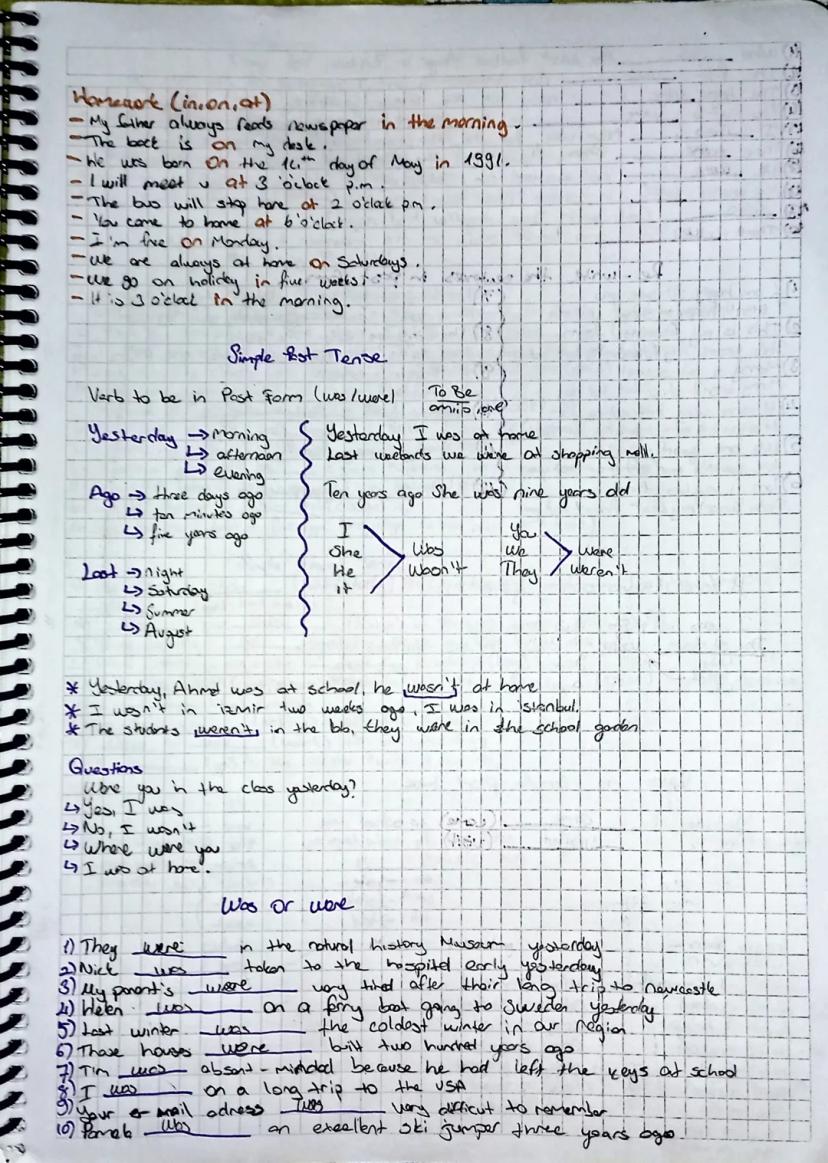 Homework (in, on, at)
- My father always reads newspaper in the morning.
- The book is on my desk.
- He was born on the 14th day of May in 1991.
- I will meet u at 3 o'clock p.m.
- The bus will stop here at 2 o'clock pm.
- You come to home at 6 o'clock.
- I'm free on Monday.
- We are always at home on Saturdays.
- We go on holiday in five weeks!
- It is 3 o'clock in the morning.
Simple Past Tense
Verb to be in Past Form (was/were) To Be
am, is, are
Yesterday → morning
↳ afternoon
↳ evening
Ago → three days ago
↳ ten minutes ago
↳ five years ago
Last → night
↳ Saturday
↳ Summer
↳ August
Yesterday I was at home
Last weekends we were at shopping mall.
Ten years ago She was nine years old
I
She
He
It
Was
Wasn't
You
We
They
were
weren't
* Yesterday, Ahmet was at school, he wasn't at home
* I wasn't in izmir two weeks ago, I was in istanbul.
* The students weren't in the bb, they were in the school garden.
Questions
Were you in the class yesterday?
↳ Yes, I was
↳ No, I wasn't
↳ Where were you
↳ I was at home.
Was or were
1) They were in the natural history Museum yesterday
2) Nick was taken to the hospital early yesterday
3) My parent's were very tired after their long trip to newcastle
4) Helen was on a ferry boat going to Sweden yesterday
5) Last winter was the coldest winter in our region
6) Those houses were built two hundred years ago
7) Tim was absent-minded because he had left the keys at school
8) I was on a long trip to the USA
9) Your e-mail adress was very difficut to remember
10) Pamela was an excellent ski jumper three years ago.